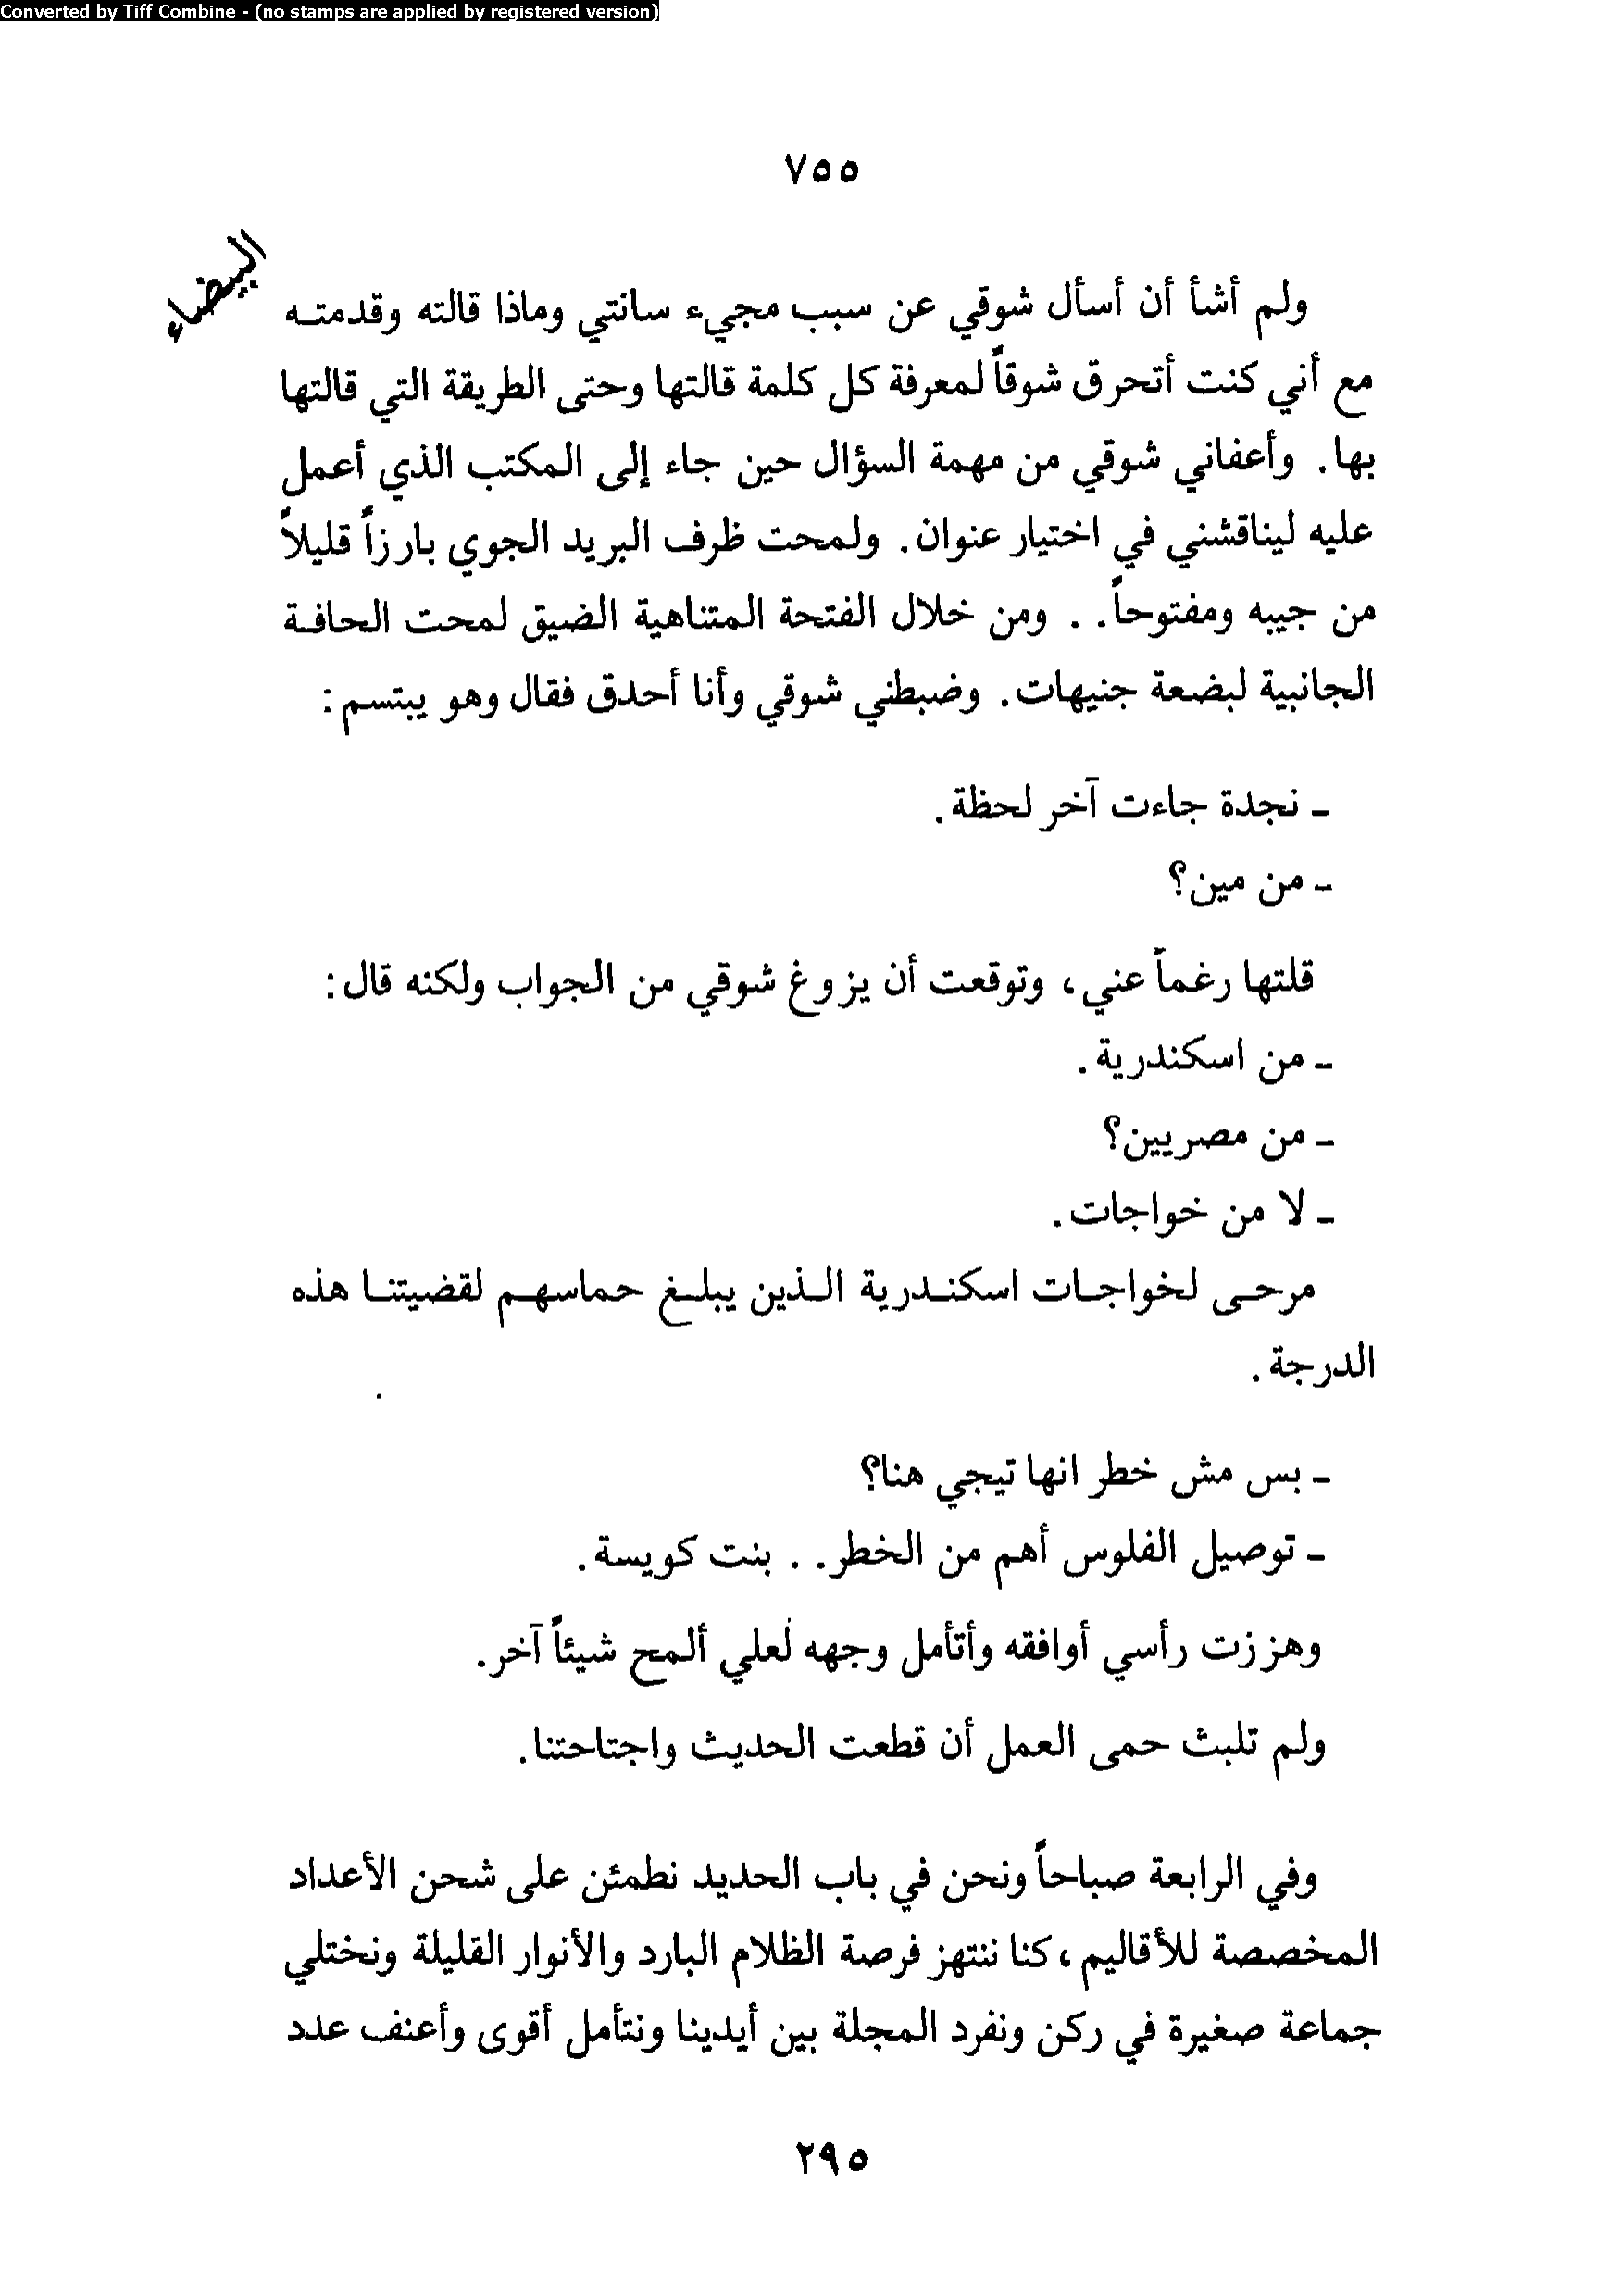 Converted by Tiff Combine - (no stamps are applied by registered version)
٧٥٥
البيضاء
ولم أشأ أن أسأل شوقي عن سبب مجيء سانتي وماذا قالته وقدمته
مع أني كنت أتحرق شوقاً لمعرفة كل كلمة قالتها وحتى الطريقة التي قالتها
بها. وأعفاني شوقي من مهمة السؤال حين جاء إلى المكتب الذي أعمل
عليه ليناقشني في اختيار عنوان. ولمحت ظرف البريد الجوي بارزاً قليلاً
من جيبه ومفتوحاً.. ومن خلال الفتحة المتناهية الضيق لمحت الحافة
الجانبية لبضعة جنيهات. وضبطني شوقي وأنا أحدق فقال وهو يبتسم:
- نجدة جاءت آخر لحظة.
- من مين؟
قلتها رغماً عني، وتوقعت أن يزوغ شوقي من الجواب ولكنه قال:
- من اسكندرية.
- من مصريين؟
- لا من خواجات.
مرحى لخواجات اسكندرية الذين يبلغ حماسهم لقضيتنا هذه
الدرجة.
- بس مش خطر انها تيجي هنا؟
- توصيل الفلوس أهم من الخطر.. بنت كويسة.
وهززت رأسي أوافقه وأتأمل وجهه لعلي ألمح شيئاً آخر.
ولم تلبث حمى العمل أن قطعت الحديث واجتاحتنا.
وفي الرابعة صباحاً ونحن في باب الحديد نطمئن على شحن الأعداد
المخصصة للأقاليم، كنا ننتهز فرصة الظلام البارد والأنوار القليلة ونختلي
جماعة صغيرة في ركن ونفرد المجلة بين أيدينا ونتأمل أقوى وأعنف عدد
٢٩٥